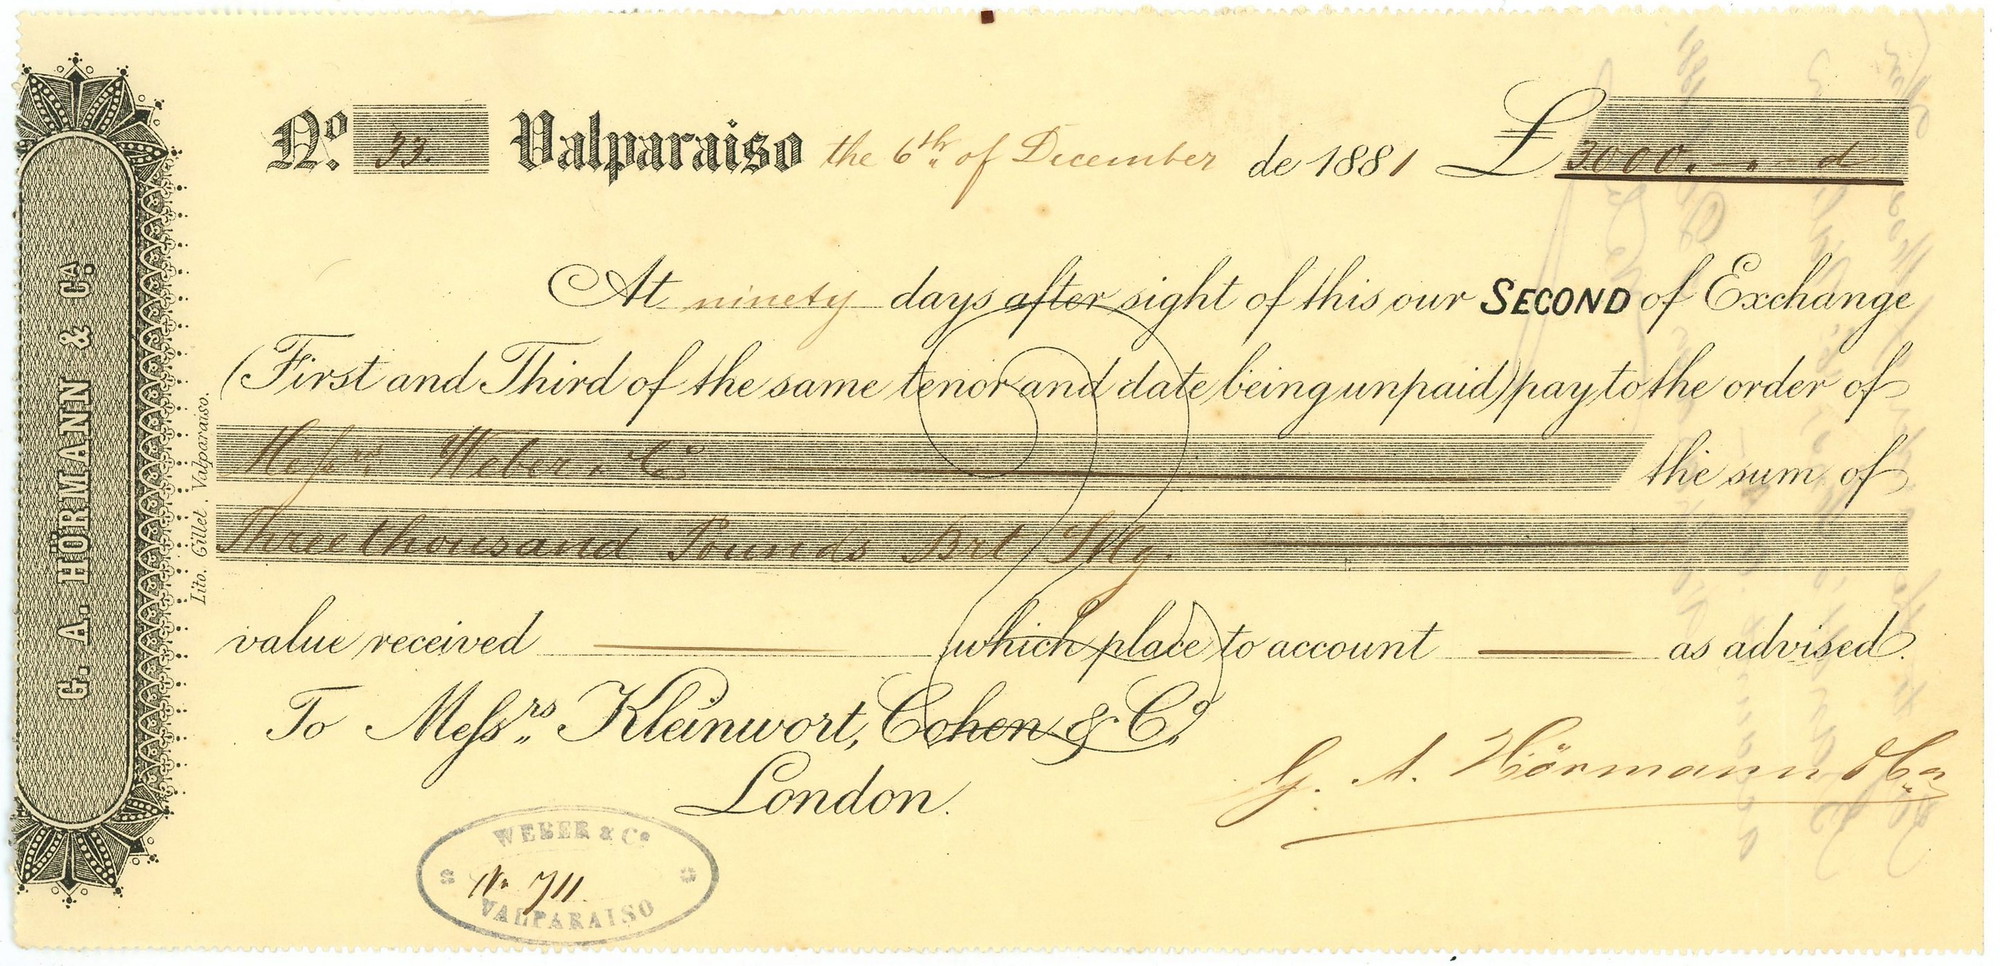 G. A. HÖRMANN & CA.
Lito. Gillet. Valparaiso.
No. 33. Valparaiso the 6th of December de 1881 £ 3000 . . d
At ninety days after sight of this our SECOND of Exchange
(First and Third of the same tenor and date being unpaid) pay to the order of
Messrs. Weber & Co the sum of
Three thousand Pounds Brt Stlg.
value received which place to account as advised.
To Messrs. Kleinwort, Cohen & Co.
London.
G. A. Hörmann & Ca
WEBER & Co
No 711.
VALPARAISO